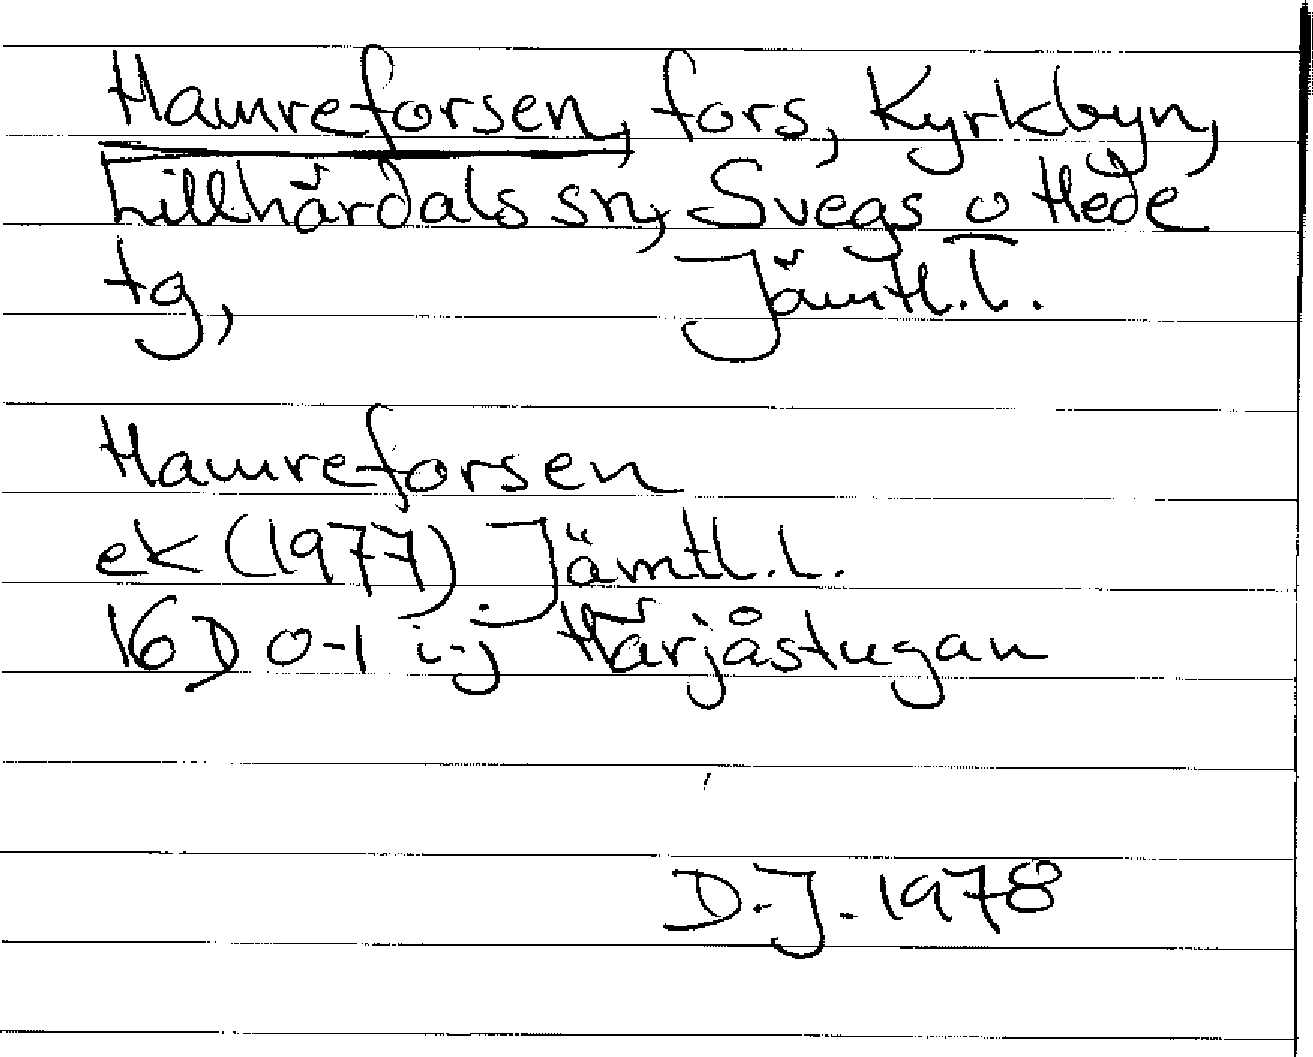 Hamreforsen, fors, Kyrkbyn,
Lillhärdals sn, Svegs o Hede
tg, Jämtl. l.
Hamreforsen
ek (1977). Jämtl. l.
16 D 0-1 i-j Härjåstugan
D.J. 1978